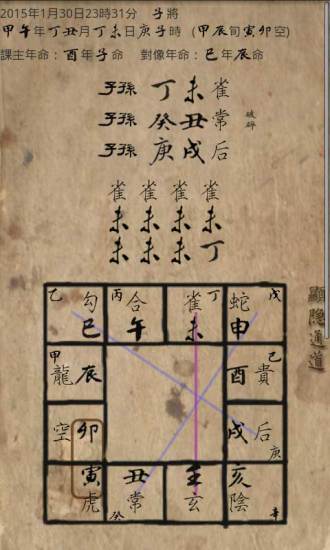 2015年1月30日23時31分 子將
甲午年丁丑月丁未日庚子時 (甲辰旬寅卯空)
課主年命:酉年子命 對像年命:巳年辰命
子孫 丁未雀
子孫 癸丑常 破碎
子孫 庚戌后
雀雀雀雀
未未未未
未未未丁
乙 勾 丙 合 雀 丁 蛇 戊
巳 午 未 申
甲 龍 辰 酉 貴 己
空 卯 戌 后 庚
寅 丑 壬 亥
虎 常 癸 玄 陰 辛
顯隐通道